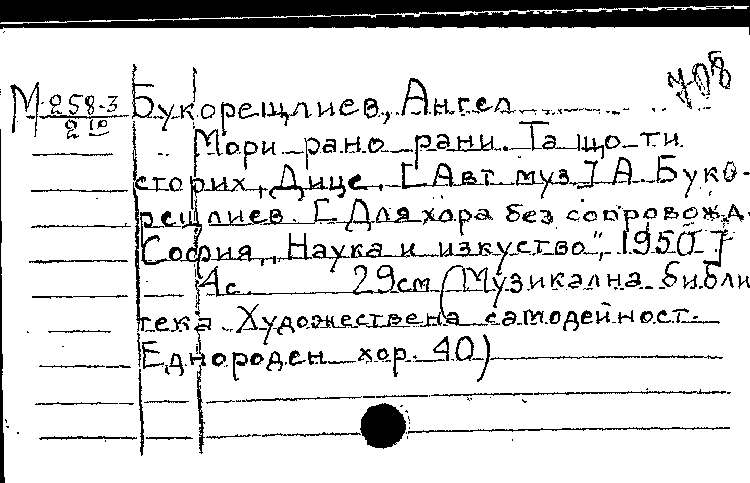 М 258-3 Букорещлиев, Ангел 708
2 10 Мори рано рани. Та що ти
сторих, Дице, [Авт. муз.] А. Буко-
рещлиев. [Для хора без сопровожд.
София, „Наука и изкуство", 1950]
4 с. 29см (Музикална библи
тека. Художествена самодейност.
Еднороден хор. 40)